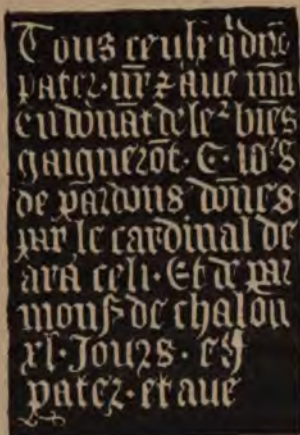 Tous ceulx q̃ dirõt
pater · nr̃e ⁊ aue mã
en dõnãt de leˢ biẽs
gaignerõt · C · io's
de p̃ardons dõnes
par le cardinal de
ara celi · Et de par
monsʳ de chalon
xl · Jours · eӡ
pater · et aue